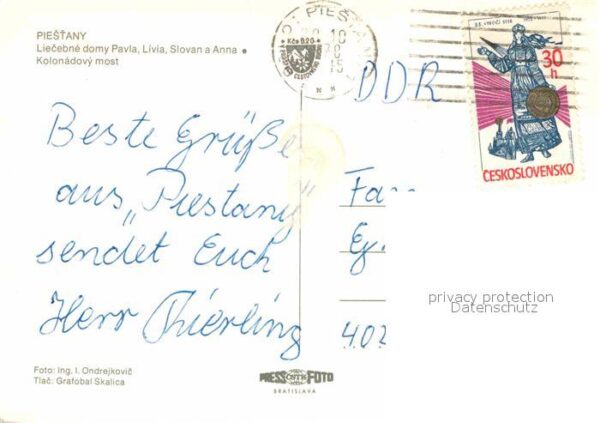 PIEŠŤANY
Liečebné domy Pavla, Lívia, Slovan a Anna •
Kolonádový most
PIEŠŤANY
Kčs 920
30
h
ČESKOSLOVENSKO
DDR
Beste Grüße
aus „Piestany"
sendet Euch
Herr Thierling
Fa
Eg.
402
privacy protection
Datenschutz
Foto: Ing. I. Ondrejkovič
Tlač: Grafobal Skalica
PRESS FOTO
BRATISLAVA